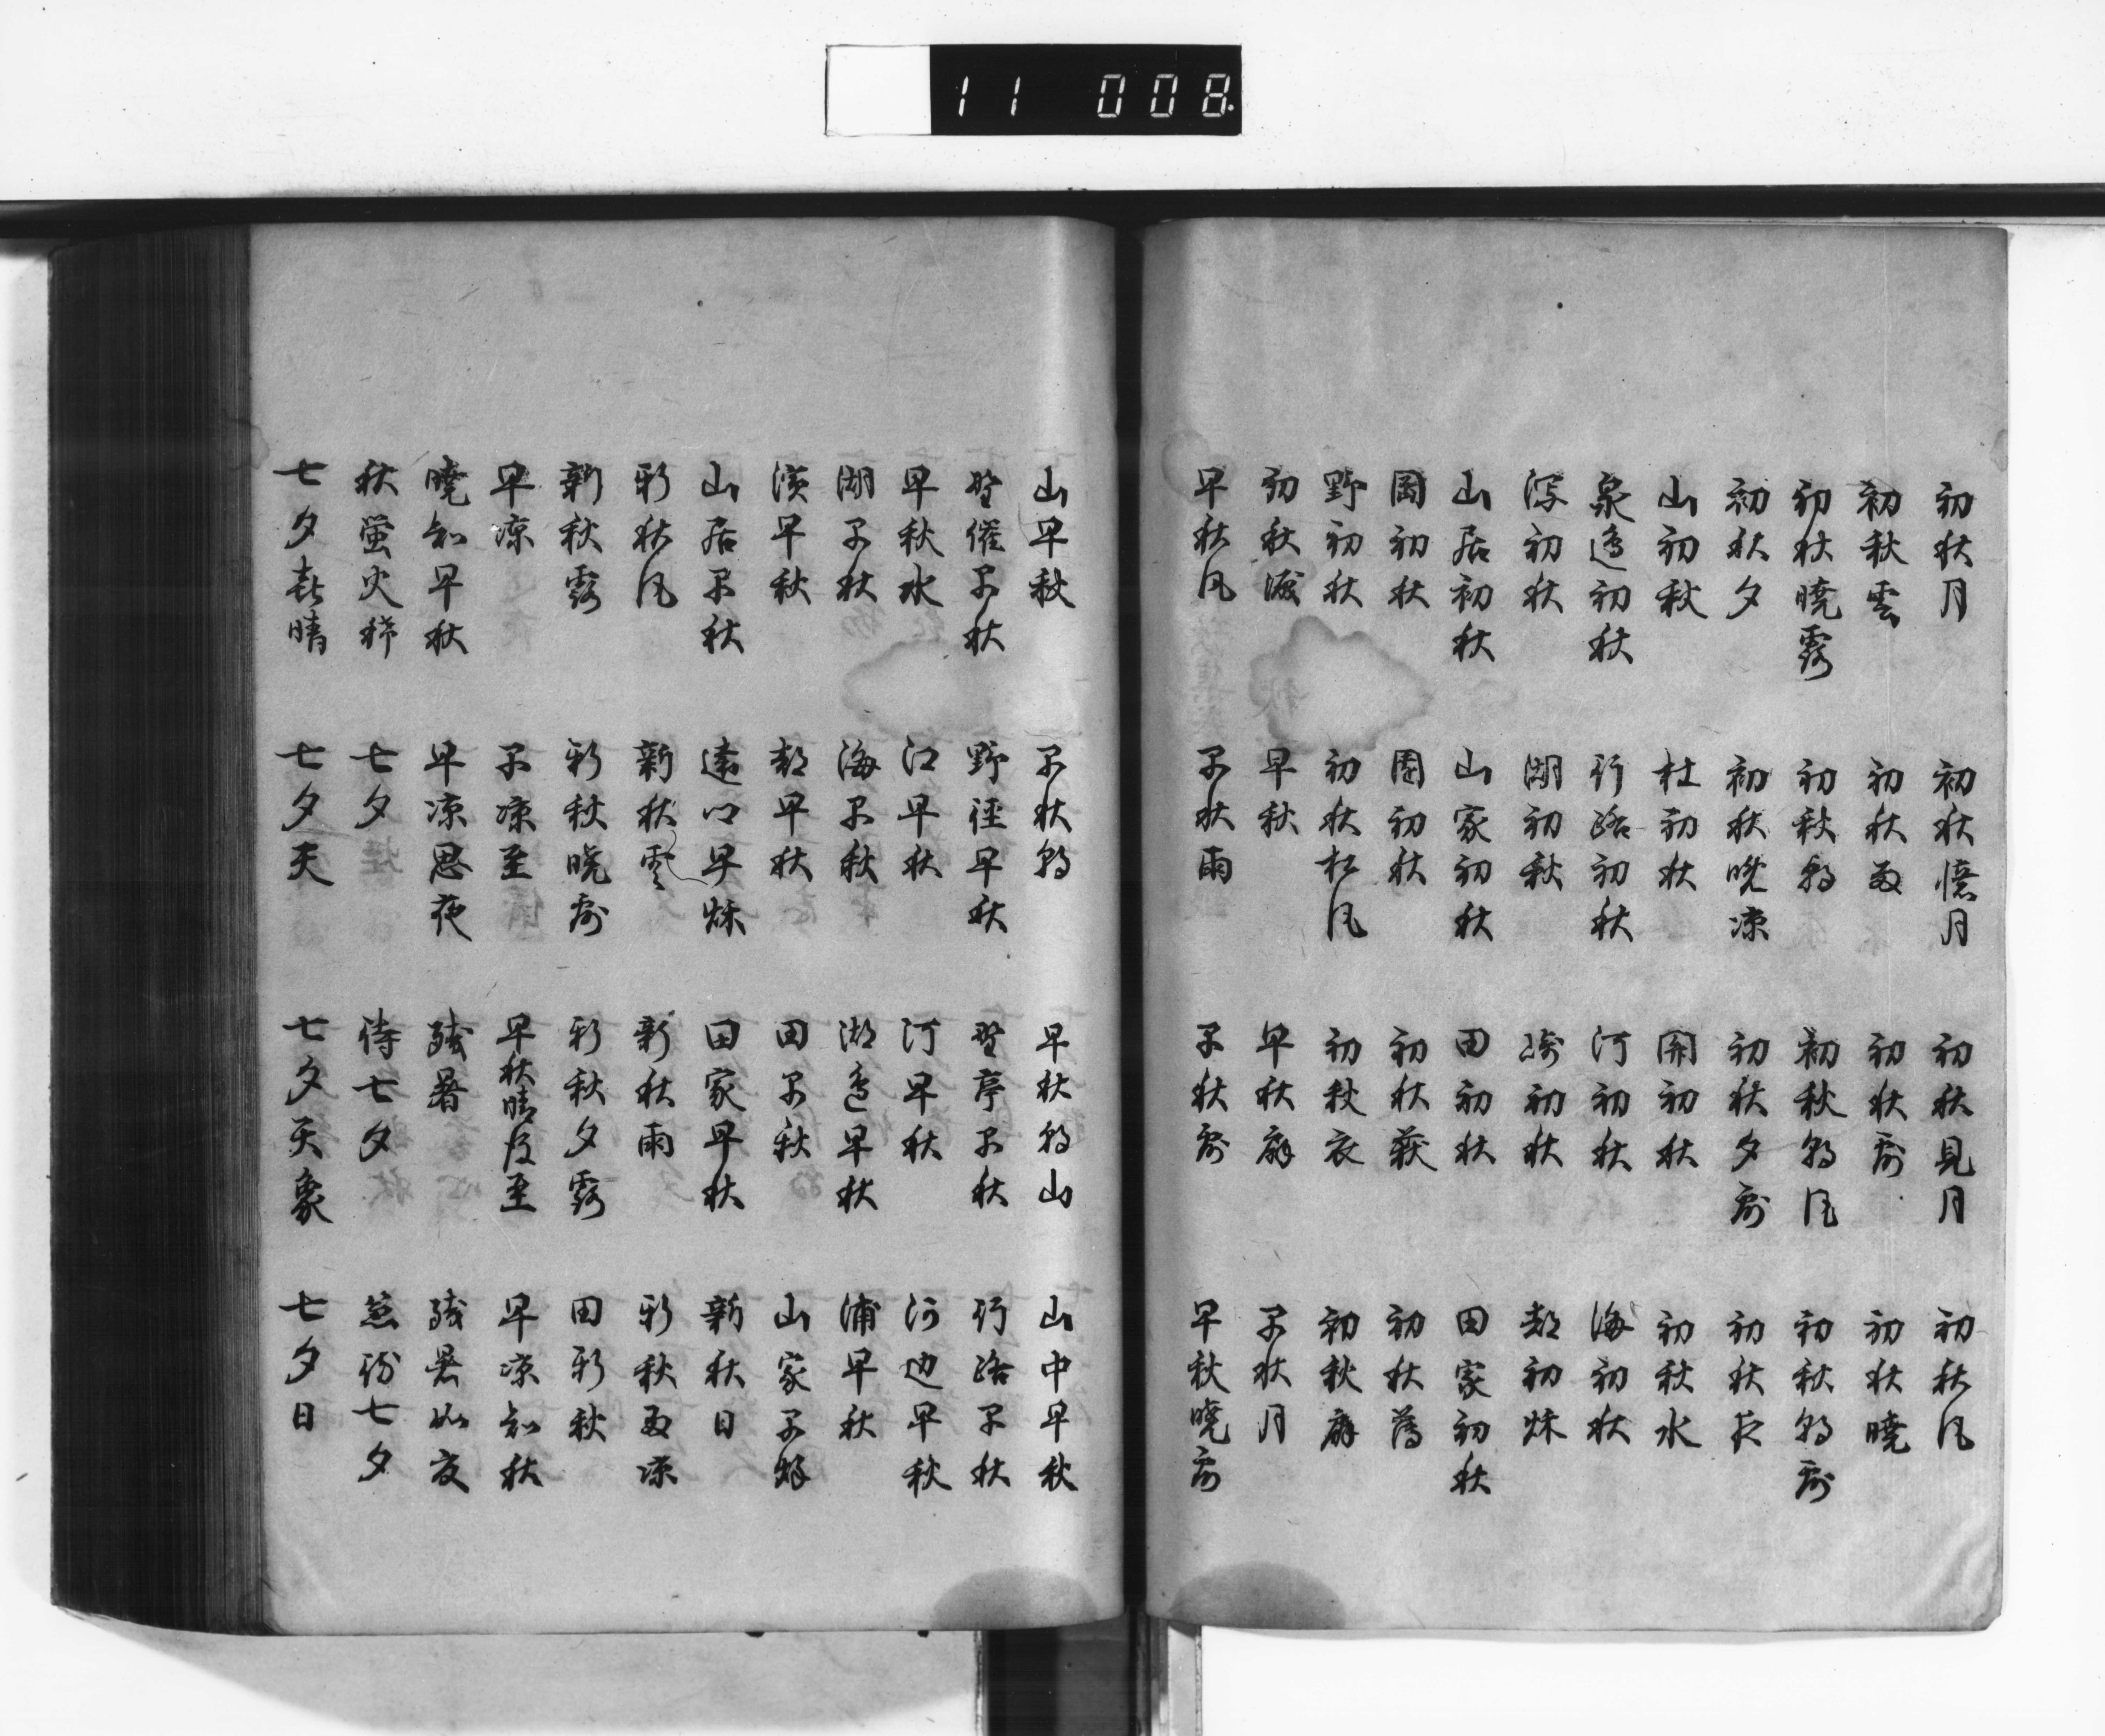 11 008
初秋月 初秋憶月 初秋見月 初秋風
初秋雲 初秋雨 初秋露 初秋暁
初秋暁露 初秋朝 初秋朝風 初秋朝露
初秋夕 初秋晩凉 初秋夕露 初秋夜
山初秋 杜初秋 関初秋 初秋水
泉辺初秋 行路初秋 河初秋 海初秋
潟初秋 湖初秋 嶋初秋 都初秋
山居初秋 山家初秋 田初秋 田家初秋
閑初秋 初秋 初秋荻 初秋薄
野初秋 初秋松風 初秋衣 初秋扇
初秋滝 早秋 早秋扇 早秋月
早秋風 早秋雨 早秋露 早秋暁露
山早秋 早秋朝 早秋朝山 山中早秋
野催早秋 野径早秋 野亭早秋 行路早秋
早秋水 江早秋 河早秋 河辺早秋
湖早秋 海早秋 湖辺早秋 浦早秋
浜早秋 都早秋 田早秋 山家早秋
山居早秋 遠山早秋 田家早秋 新秋日
新秋風 新秋雲 新秋雨 新秋雨凉
新秋露 新秋暁露 新秋夕露 田新秋
早凉 早凉至 早秋晴後至 早凉知秋
暁知早秋 早凉思夜 残暑 残暑如夏
秋蛍火稀 七夕 待七夕 七夕
七夕喜晴 七夕天 七夕天象 七夕日